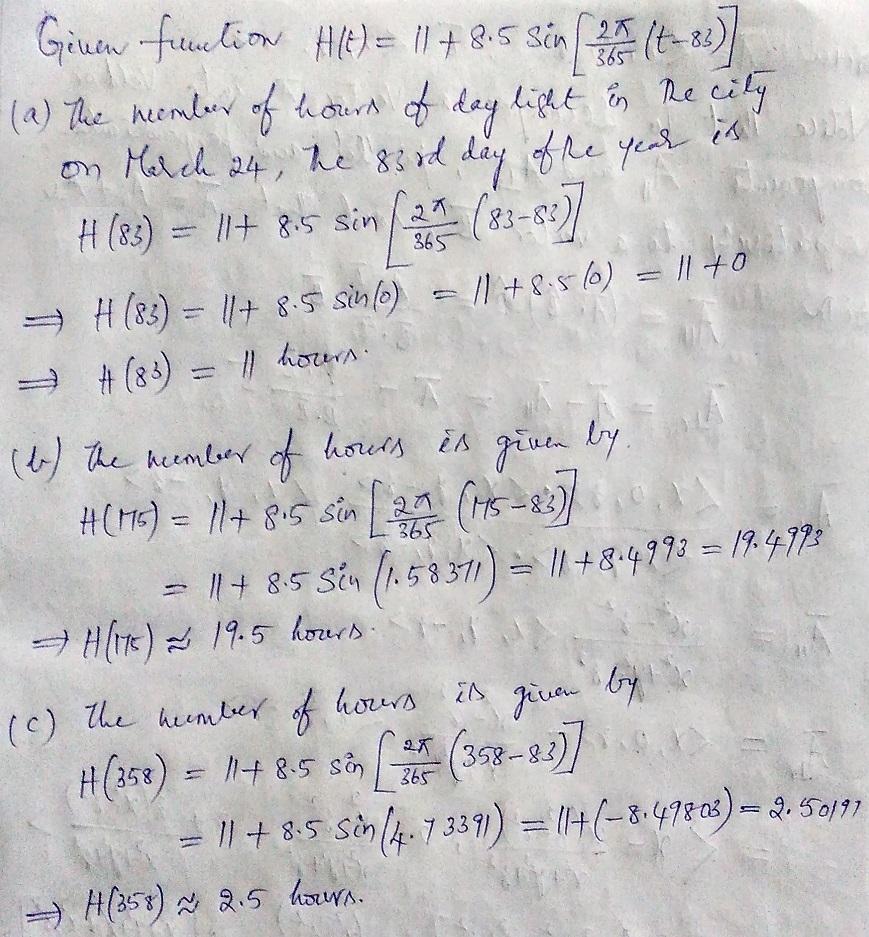 Given function H(t) = 11 + 8.5 Sin [2π/365 (t-83)]
(a) The number of hours of day light in The city
on March 24, The 83rd day of the year is
H(83) = 11+ 8.5 sin [2π/365 (83-83)]
⇒ H(83) = 11+ 8.5 sin(0) = 11 + 8.5 (0) = 11 + 0
⇒ H(83) = 11 hours.
(b) The number of hours is given by.
H(175) = 11+ 8.5 sin [2π/365 (175-83)]
= 11+ 8.5 Sin (1.58371) = 11 + 8.4993 = 19.4993
⇒ H(175) ≈ 19.5 hours.
(c) The number of hours is given by
H(358) = 11+ 8.5 sin [2π/365 (358-83)]
= 11 + 8.5 sin(4.73391) = 11+(-8.49803) = 2.50197
⇒ H(358) ≈ 2.5 hours.